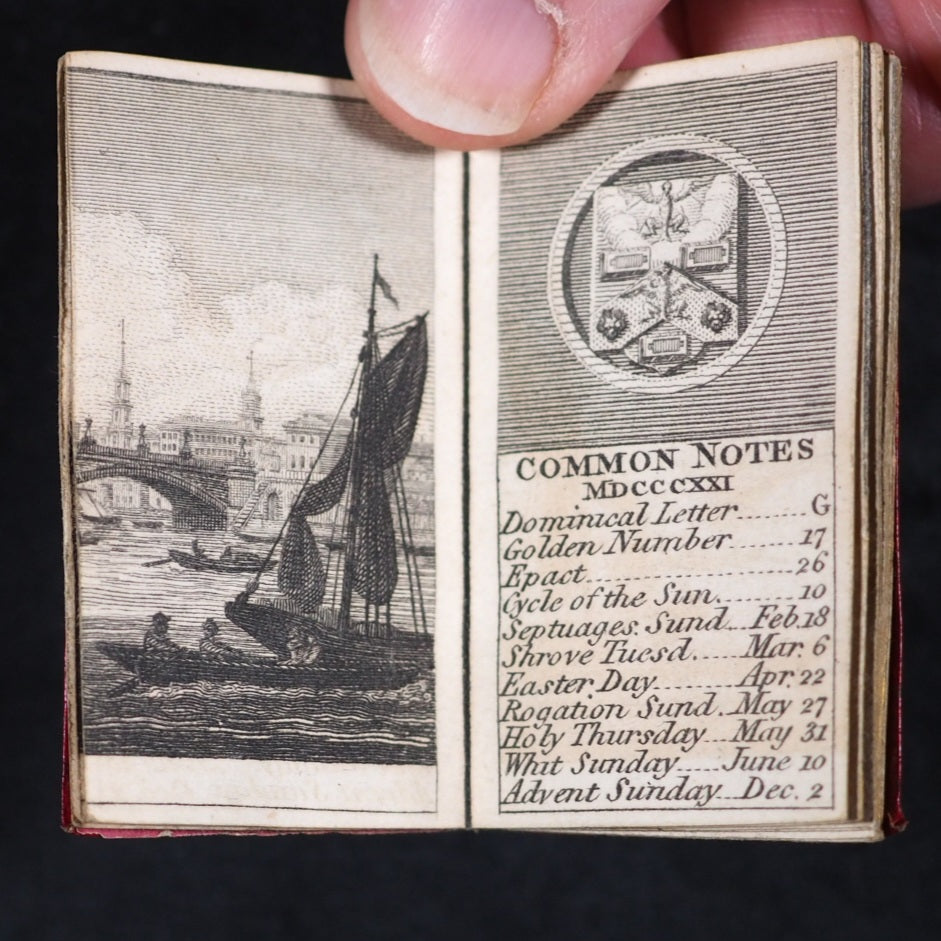 COMMON NOTES
MDCCCXXI
Dominical Letter........G
Golden Number........17
Epact........................26
Cycle of the Sun........10
Septuages. Sund...Feb.18
Shrove Tuesd.....Mar. 6
Easter Day.........Apr. 22
Rogation Sund..May 27
Holy Thursday...May 31
Whit Sunday.....June 10
Advent Sunday...Dec. 2